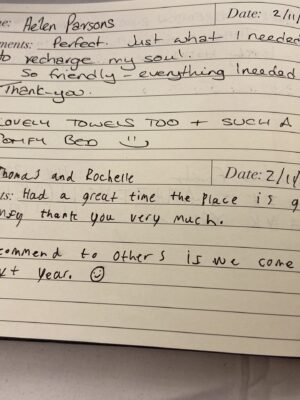 me: Helen Parsons Date: 2/11/
ments: Perfect. Just what I needed
to recharge my soul.
So friendly - everything I needed.
Thank-you.
LOVELY TOWELS TOO + SUCH A
COMFY BED
Thomas and Rochelle Date: 2/11/
ts: Had a great time the place is g
thank you very much.
commend to others is we come
xt year.